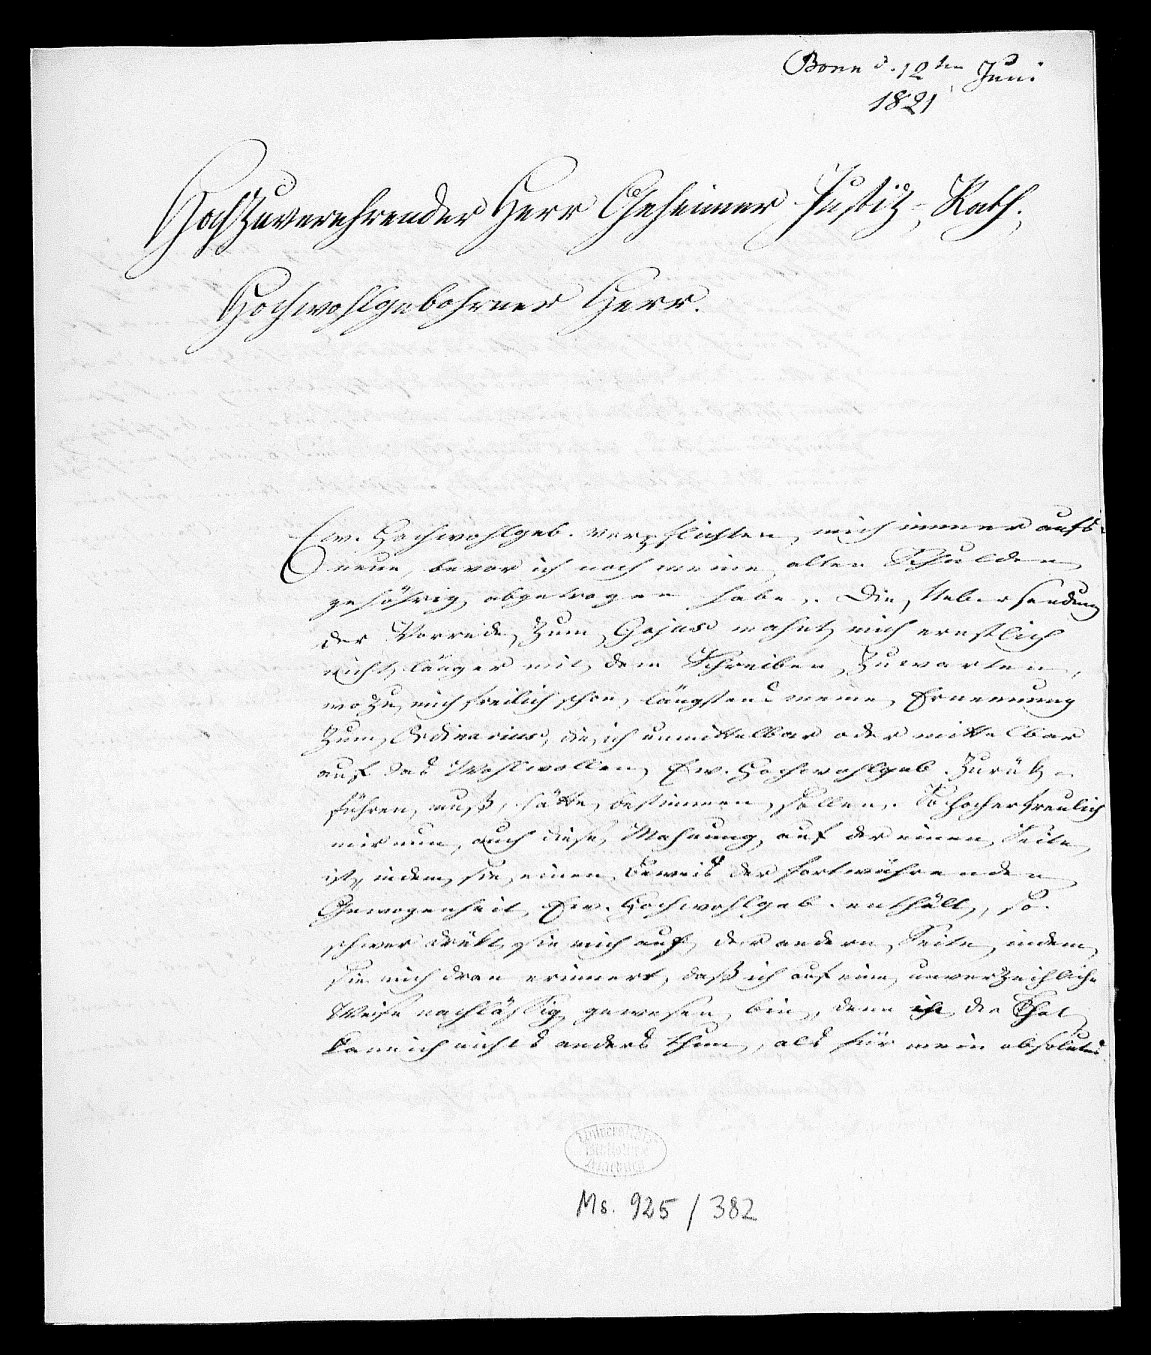 Bonn d. 12ten Juni
1821
Hochzuverehrender Herr Geheimer Justiz-Rath,
Hochwohlgebohrner Herr.
Ew. Hochwohlgeb. verpflichten mich immer aufs
neue, bevor ich noch meine alten Schulden
gehörig abgetragen habe. Die Uebersendung
der Vorrede zum Gajus mahnt mich ernstlich
nicht länger mit dem Schreiben zuwarten,
wozu mich freilich schon längstens meine Ernennung
zum Ordinarius, die ich unmittelbar oder mittelbar
auf das Wohlwollen Ew. Hochwohlgeb. zurük
führen muß, hätte bestimmen sollen. So hocherfreulich
mir nun auch diese Mahnung auf der einen Seite
ist, indem sie einen Beweis der fortwährenden
Gewogenheit Ew. Hochwohlgeb. enthält, so
schwer drükt sie mich auf der andern Seite, indem
sie mich dran erinnert, daß ich auf eine unverzeihliche
Weise nachläßig gewesen bin, denn in der That
kann ich nichts anders thun, als für mein absolutes
Universitäts
Bibliothek
Marburg
Ms. 925 / 382